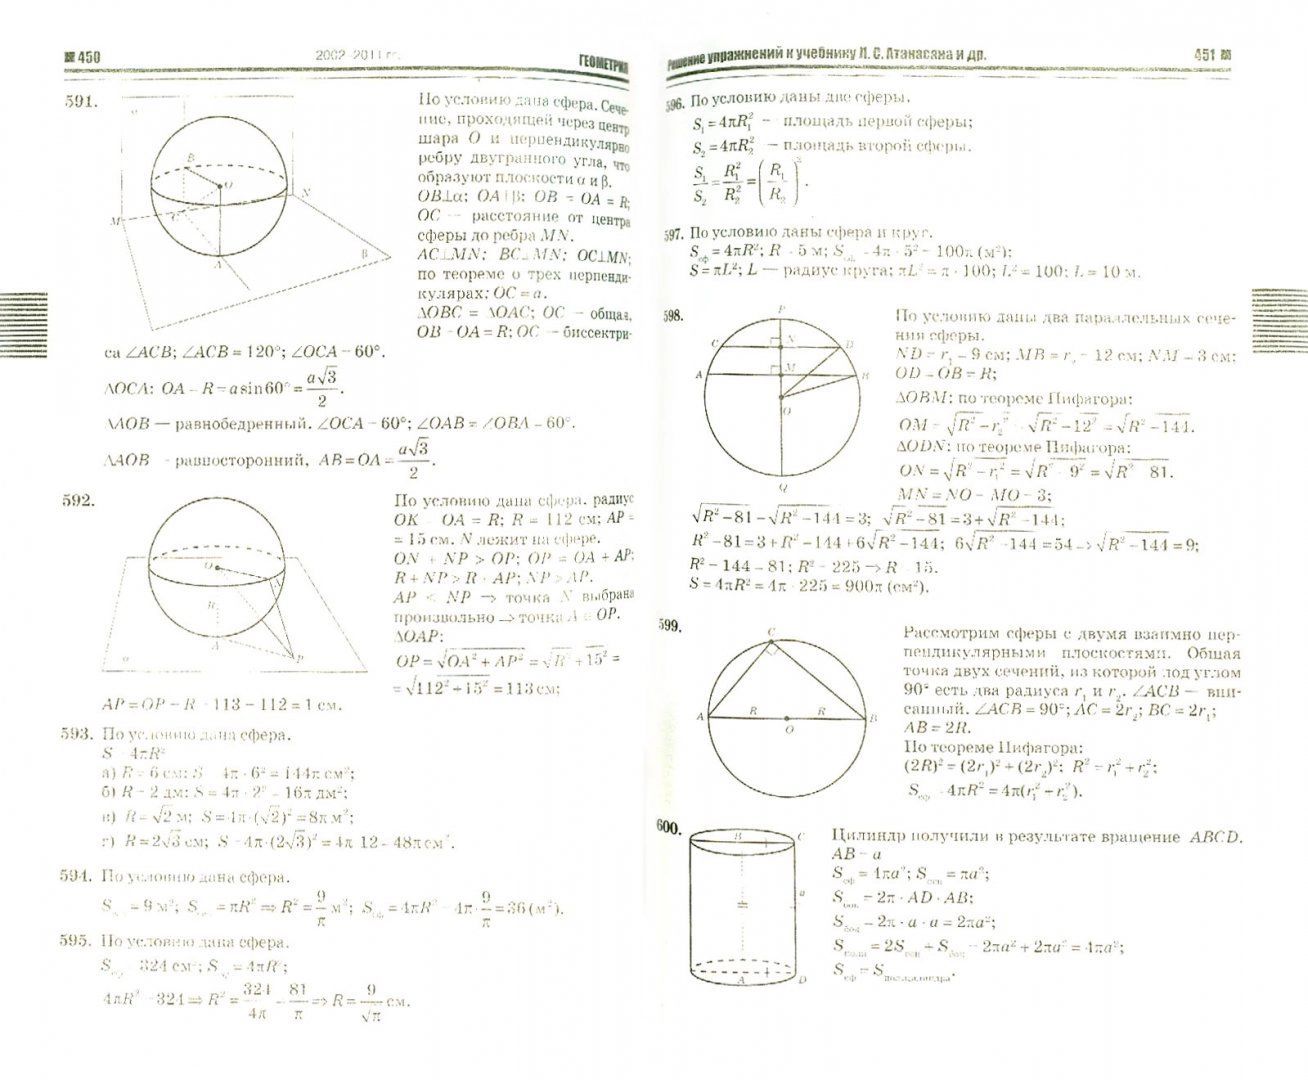 450
2002-2011 гг.
ГЕОМЕТРИЯ
591.
По условию дана сфера. Сече-
ние, проходящей через центр
шара O и перпендикулярно
ребру двугранного угла, что
образуют плоскости α и β.
OB⊥α; OA⊥β; OB = OA = R;
OC — расстояние от центра
сферы до ребра MN.
AC⊥MN; BC⊥MN; OC⊥MN;
по теореме о трех перпенди-
кулярах; OC = a.
ΔOBC = ΔOAC; OC — общая,
OB = OA = R; OC — биссектри-
са ∠ACB; ∠ACB = 120°; ∠OCA = 60°.
ΔOCA: OA = R = a sin60° = a√3/2.
ΔAOB — равнобедренный. ∠OCA = 60°; ∠OAB = ∠OBA = 60°.
ΔAOB — равносторонний, AB = OA = a√3/2.
592.
По условию дана сфера. радиус
OK = OA = R; R = 112 см; AP =
= 15 см. N лежит на сфере.
ON + NP > OP; OP = OA + AP;
R + NP > R + AP; NP > AP.
AP < NP ⇒ точка N выбрана
произвольно ⇒ точка A ∈ OP.
ΔOAP:
OP = √(OA² + AP²) = √(R² + 15²) =
= √(112² + 15²) = 113 см;
AP = OP − R = 113 − 112 = 1 см.
593. По условию дана сфера.
S = 4πR²
а) R = 6 см; S = 4π · 6² = 144π см²;
б) R = 2 дм; S = 4π · 2² = 16π дм²;
в) R = √2 м; S = 4π·(√2)² = 8π м²;
г) R = 2√3 см; S = 4π·(2√3)² = 4π·12 = 48π см².
594. По условию дана сфера.
S = 9 м²; S = πR² ⇒ R² = 9/π м²; S = 4πR² = 4π·9/π = 36 (м²).
595. По условию дана сфера.
S = 324 см²; S = 4πR²;
4πR² = 324 ⇒ R² = 324/4π = 81/π ⇒ R = 9/√π см.
Решение упражнений к учебнику Л. С. Атанасяна и др.
451
596. По условию даны две сферы.
S₁ = 4πR₁² — площадь первой сферы;
S₂ = 4πR₂² — площадь второй сферы.
S₁/S₂ = R₁²/R₂² = (R₁/R₂)².
597. По условию даны сфера и круг.
Sсф = 4πR²; R = 5 м; Sсф = 4π · 5² = 100π (м²);
S = πL²; L — радиус круга; πL² = π · 100; L² = 100; L = 10 м.
598.
По условию даны два параллельных сече-
ния сферы.
ND = r₁ = 9 см; MB = r₂ = 12 см; NM = 3 см;
OD = OB = R;
ΔOBM: по теореме Пифагора:
OM = √(R² − r₂²) = √(R² − 12²) = √(R² − 144).
ΔODN: по теореме Пифагора:
ON = √(R² − r₁²) = √(R² − 9²) = √(R² − 81).
MN = NO − MO = 3;
√(R² − 81) − √(R² − 144) = 3; √(R² − 81) = 3 + √(R² − 144);
R² − 81 = 3 + R² − 144 + 6√(R² − 144); 6√(R² − 144) = 54 ⇒ √(R² − 144) = 9;
R² − 144 = 81; R² = 225 ⇒ R = 15.
S = 4πR² = 4π · 225 = 900π (см²).
599.
Рассмотрим сферы с двумя взаимно пер-
пендикулярными плоскостями. Общая
точка двух сечений, из которой под углом
90° есть два радиуса r₁ и r₂. ∠ACB — впи-
санный. ∠ACB = 90°; AC = 2r₂; BC = 2r₁;
AB = 2R.
По теореме Пифагора:
(2R)² = (2r₁)² + (2r₂)²; R² = r₁² + r₂²;
Sсф = 4πR² = 4π(r₁² + r₂²).
600.
Цилиндр получили в результате вращение ABCD.
AB = a
Sсф = 4πa²; Sосн = πa²;
Sбок = 2π · AD · AB;
Sбок = 2π · a · a = 2πa²;
Sполн = 2Sосн + Sбок = 2πa² + 2πa² = 4πa²;
Sсф = Sпол.цилиндра.